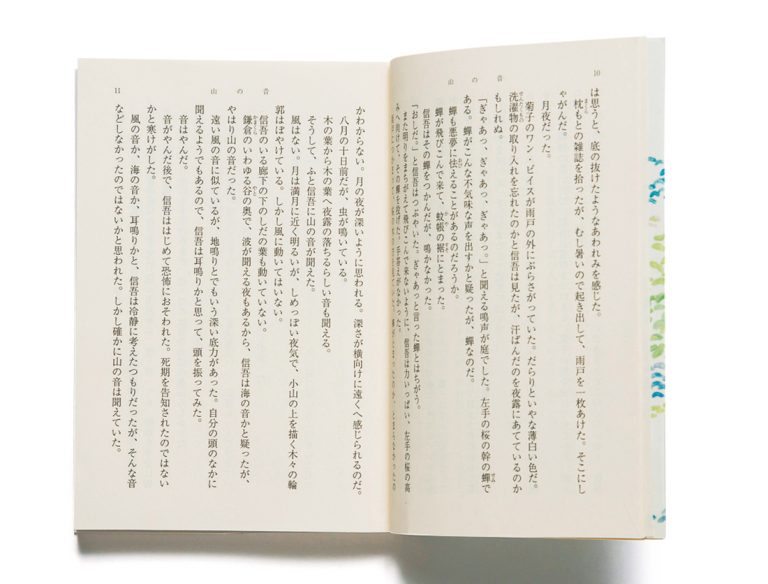 10
山の音
は思うと、底の抜けたようなあわれみを感じた。
枕もとの雑誌を拾ったが、むし暑いので起き出して、雨戸を一枚あけた。そこにし
ゃがんだ。
月夜だった。
菊子のワン・ピイスが雨戸の外にぶらさがっていた。だらりといやな薄白い色だ。
洗濯物の取り入れを忘れたのかと信吾は見たが、汗ばんだのを夜露にあてているのか
もしれぬ。
「ぎゃあっ、ぎゃあっ、ぎゃあっ。」と聞える鳴声が庭でした。左手の桜の幹の蝉で
ある。蝉がこんな不気味な声を出すかと疑ったが、蝉なのだ。
蝉も悪夢に怯えることがあるのだろうか。
蝉が飛びこんで来て、蚊帳の裾にとまった。
信吾はその蝉をつかんだが、鳴かなかった。
「おしだ。」と信吾はつぶやいた。ぎゃあっと言った蝉とはちがう。
また明りをまちがえて飛びこんで来ないように、信吾は力いっぱい、左手の桜の高
みへ向けて、その蝉を投げた。手答えがなかった。
山の音
11
かわからない。月の夜が深いように思われる。深さが横向けに遠くへ感じられるのだ。
八月の十日前だが、虫が鳴いている。
木の葉から木の葉へ夜露の落ちるらしい音も聞える。
そうして、ふと信吾に山の音が聞えた。
風はない。月は満月に近く明るいが、しめっぽい夜気で、小山の上を描く木々の輪
郭はぼやけている。しかし風に動いてはいない。
信吾のいる廊下の下のしだの葉も動いていない。
鎌倉のいわゆる谷の奥で、波が聞える夜もあるから、信吾は海の音かと疑ったが、
やはり山の音だった。
遠い風の音に似ているが、地鳴りとでもいう深い底力があった。自分の頭のなかに
聞えるようでもあるので、信吾は耳鳴りかと思って、頭を振ってみた。
音はやんだ。
音がやんだ後で、信吾ははじめて恐怖におそわれた。死期を告知されたのではない
かと寒けがした。
風の音か、海の音か、耳鳴りかと、信吾は冷静に考えたつもりだったが、そんな音
などしなかったのではないかと思われた。しかし確かに山の音は聞えていた。